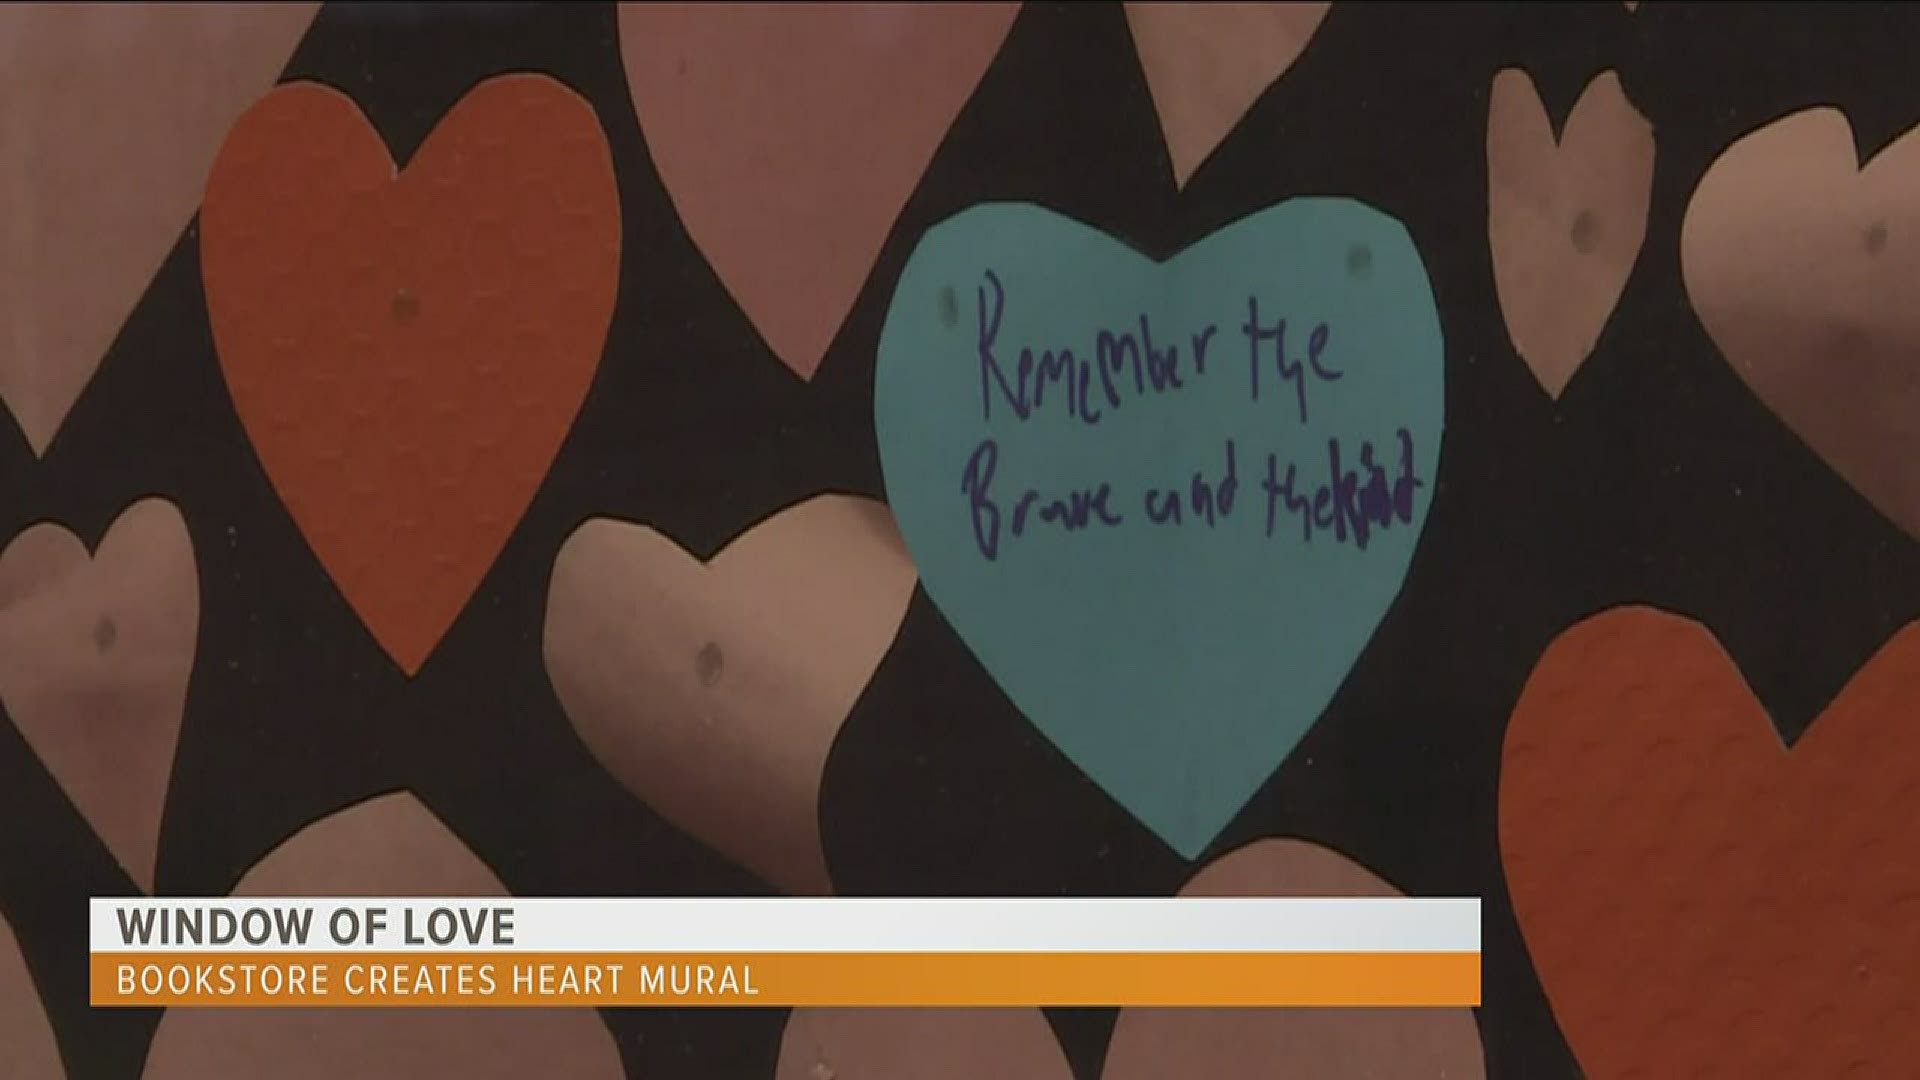 Remember the
Brave and the kind
WINDOW OF LOVE
BOOKSTORE CREATES HEART MURAL